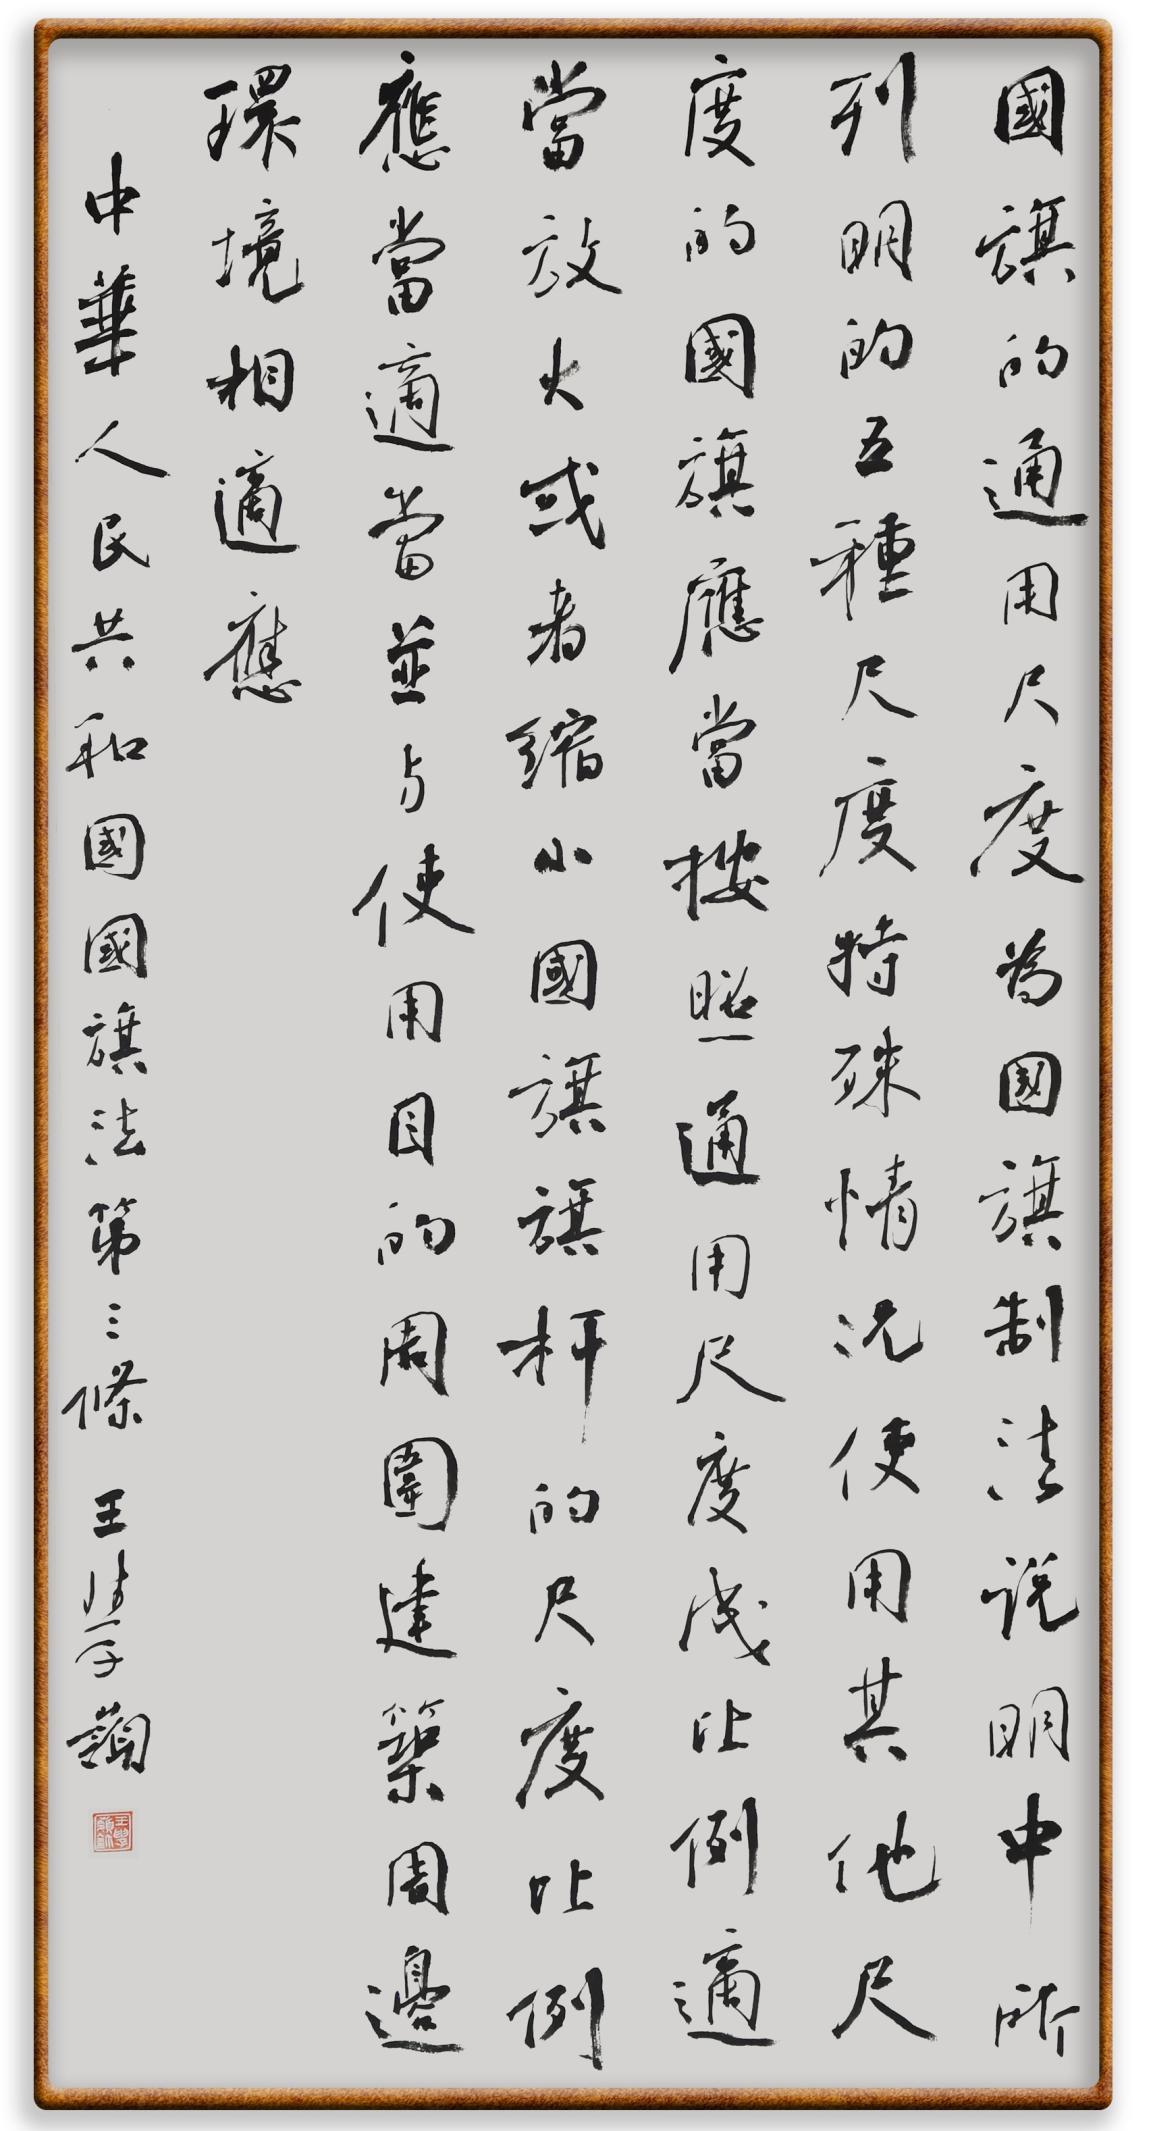 國旗的通用尺度為國旗制法说明中所
列明的五種尺度特殊情况使用其他尺
度的國旗應當按照通用尺度成比例適
當放大或者缩小國旗旗杆的尺度比例
應當適當並与使用目的周圍建築周邊
環境相適應
中華人民共和國國旗法第三條 王